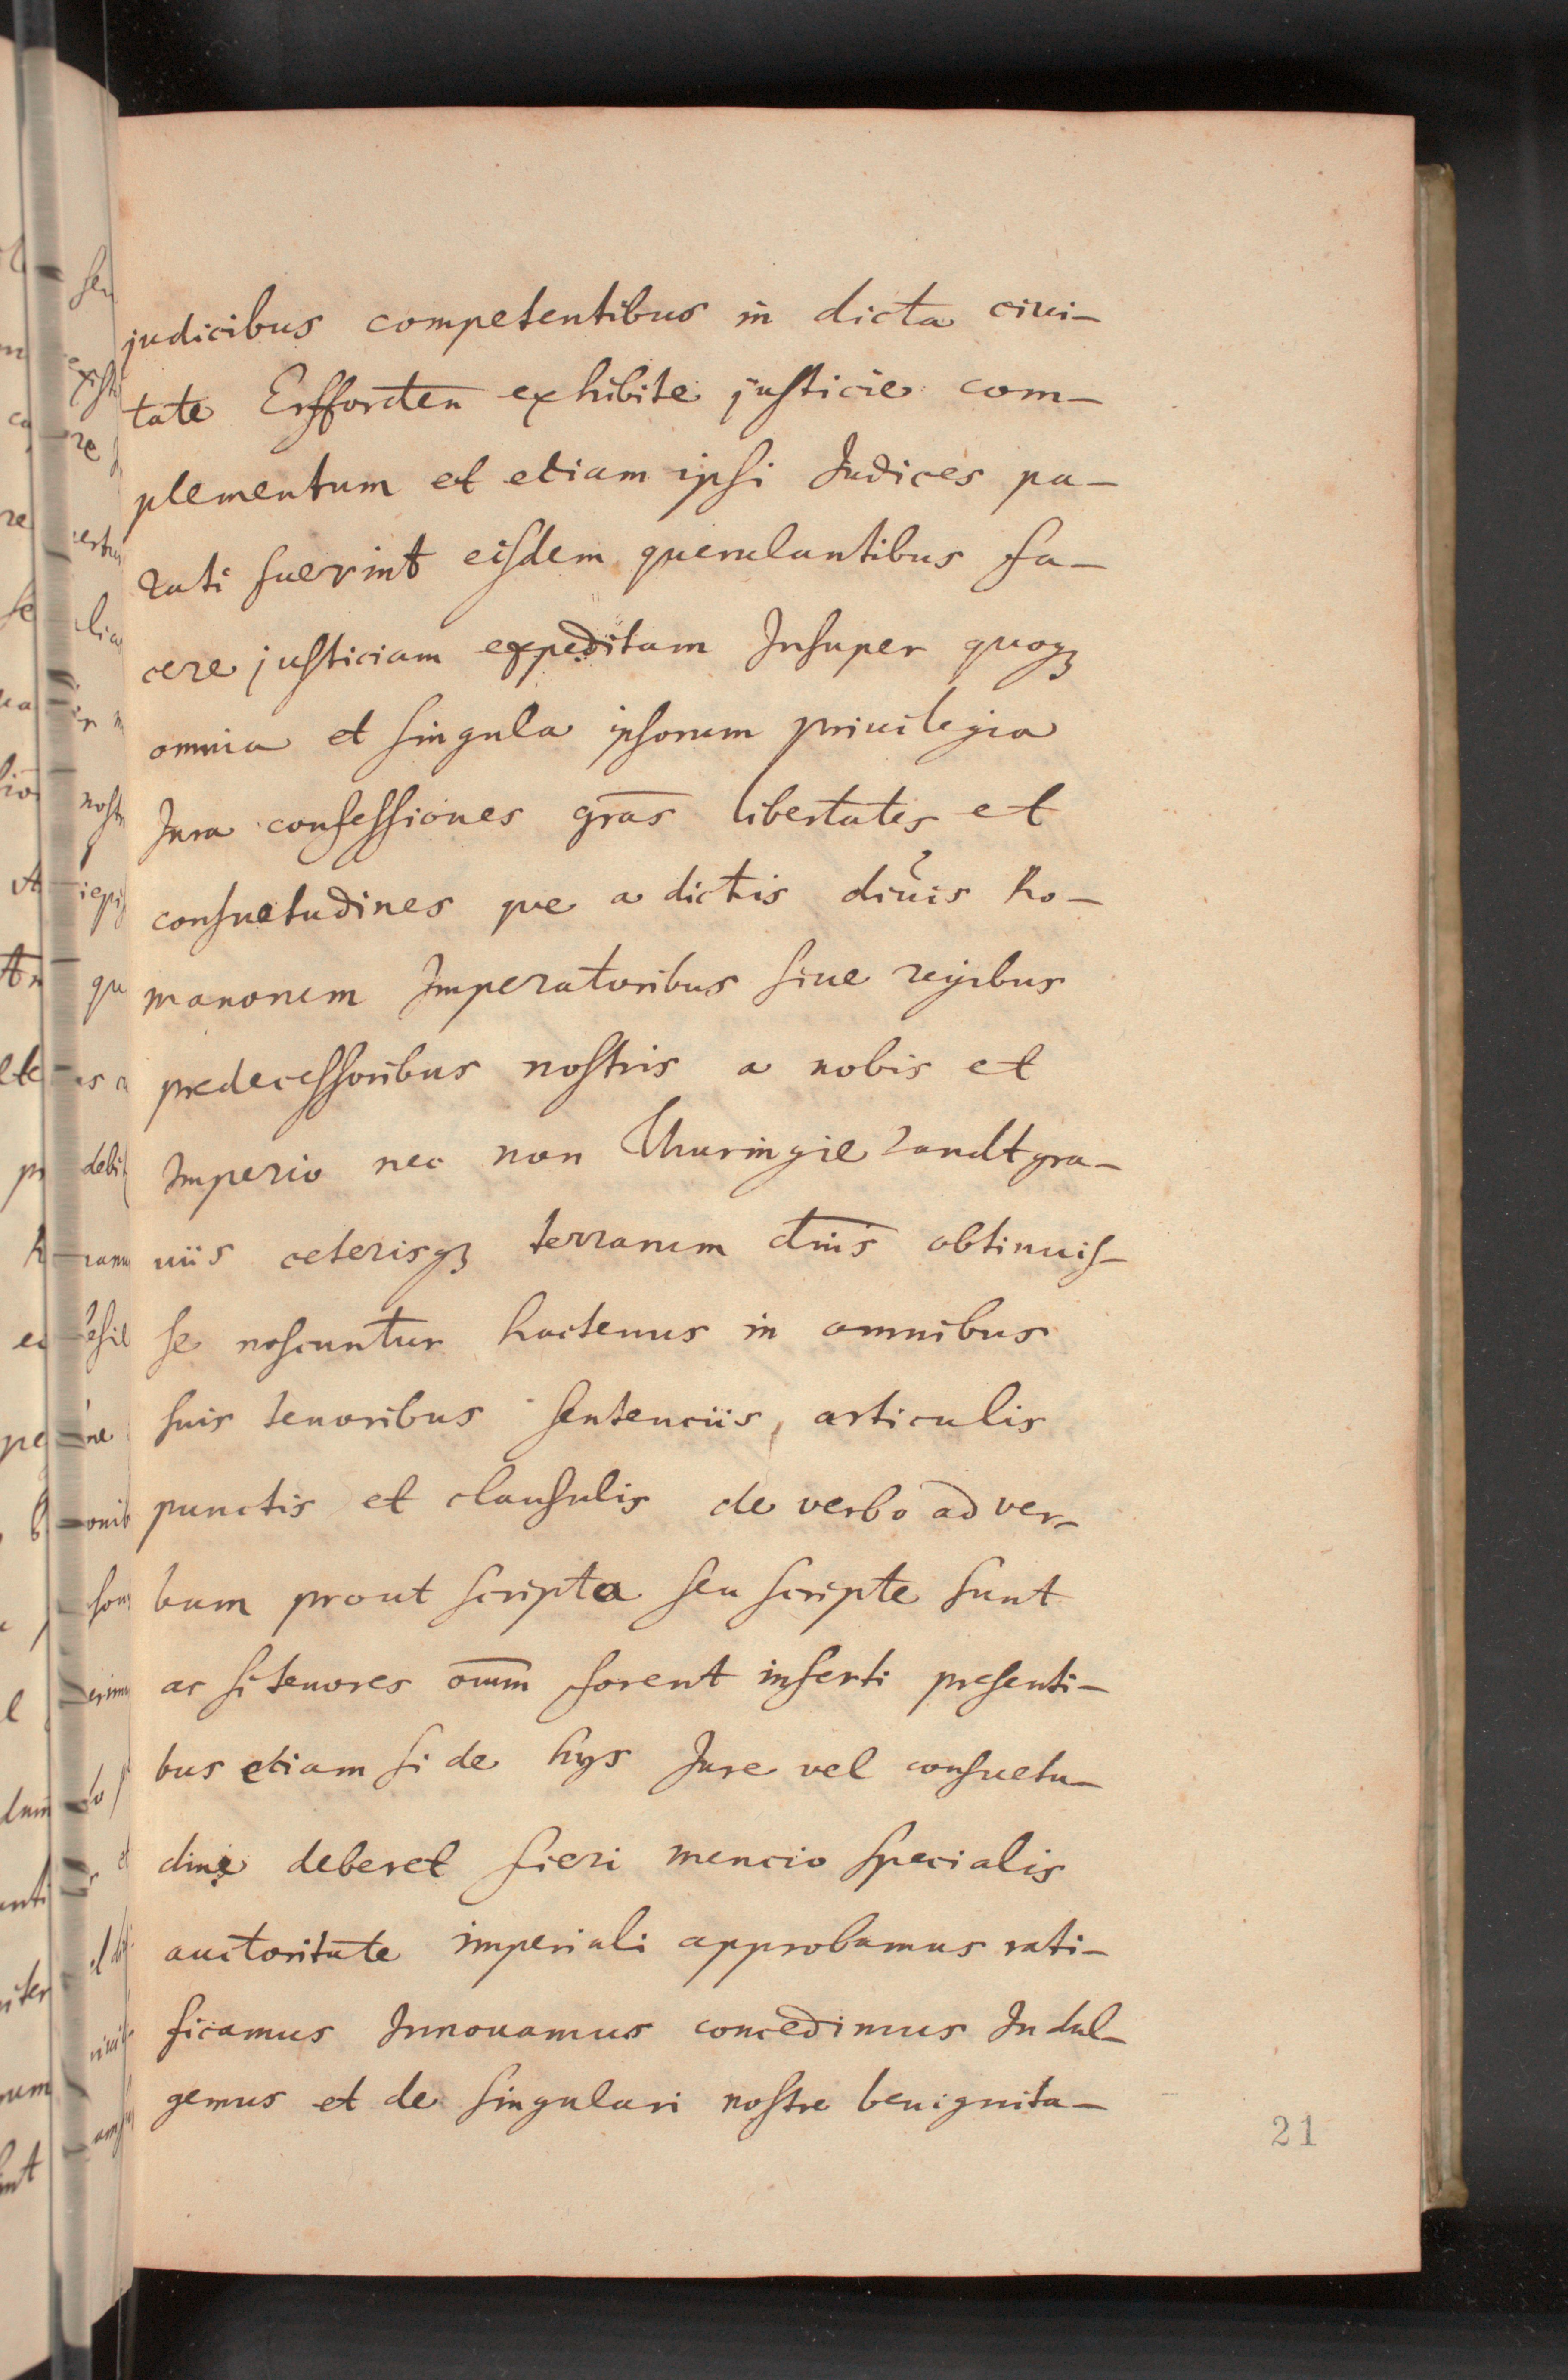 judicibus competentibus in dicta ciui-
tate Erffordten̄ exhibite justicie com-
plementum et etiam ipsi Judices pa-
rati fuerint eisdem querulantibus fa-
cere justiciam expeditam Insuper quoqꝫ
omnia et singula ipsorum priuilegia
Jura confessiones gras̄ libertates et
consuetudines que a dictis diuis Ro-
manorum Imperatoribus siue regibus
predecessoribus nostris a nobis et
Imperio nec non Thuringie Landtgra-
uiis ceterisqꝫ terrarum dnīs obtinuis-
se noscuntur hactenus in omnibus
suis tenoribus sentenciis, articulis
punctis et clausulis de verbo ad ver-
bum prout scripta seu scripte sunt
ac si tenores om̄m forent inserti presenti-
bus etiam si de hys Jure vel consuetu-
dine deberet fieri mencio specialis
auctoritate imperiali approbamus rati-
ficamus Innouamus concedimus Indul-
gemus et de singulari nostre benignita-
21